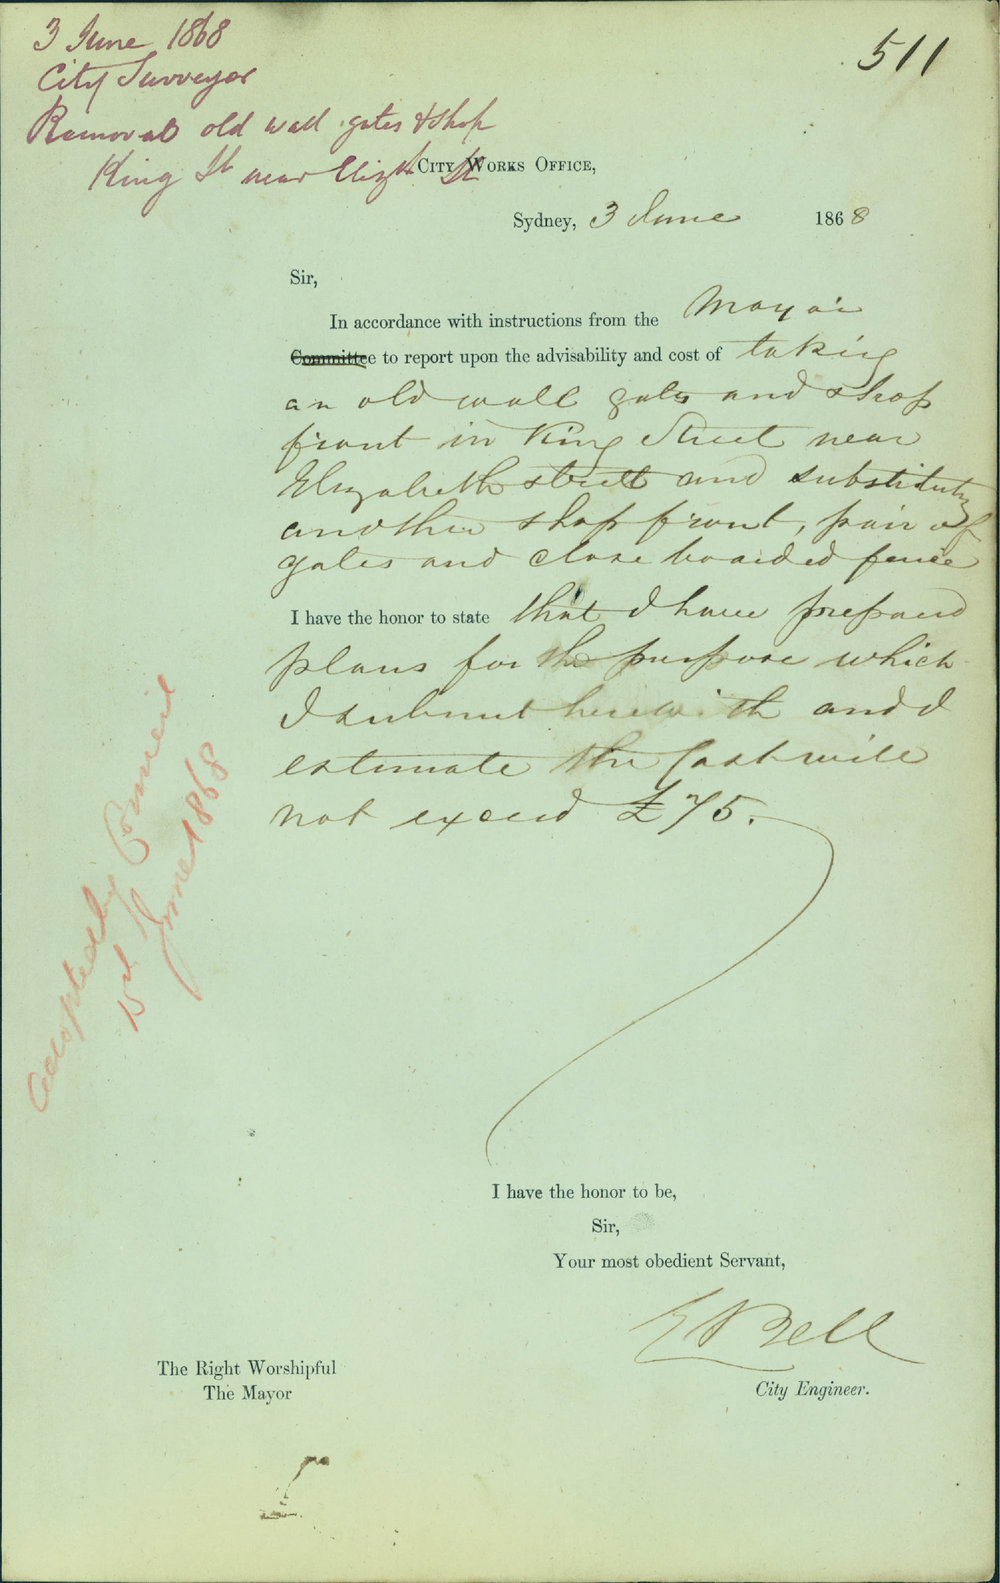 3 June 1868
City Surveyor
Removal old wall gates & shop
King St near Elizth St
511
City Works Office,
Sydney, 3 June 1868
Sir,
In accordance with instructions from the Mayor
Committee to report upon the advisability and cost of taking
an old wall gates and shop
front in King Street near
Elizabeth street and substituting
another shop front, pair of
gates and close boarded fence
I have the honor to state that I have prepared
plans for the purpose which
I submit herewith and I
estimate the Cost will
not exceed £75.
Adopted by Council
15 June 1868
I have the honor to be,
Sir,
Your most obedient Servant,
E Bell
City Engineer.
The Right Worshipful
The Mayor